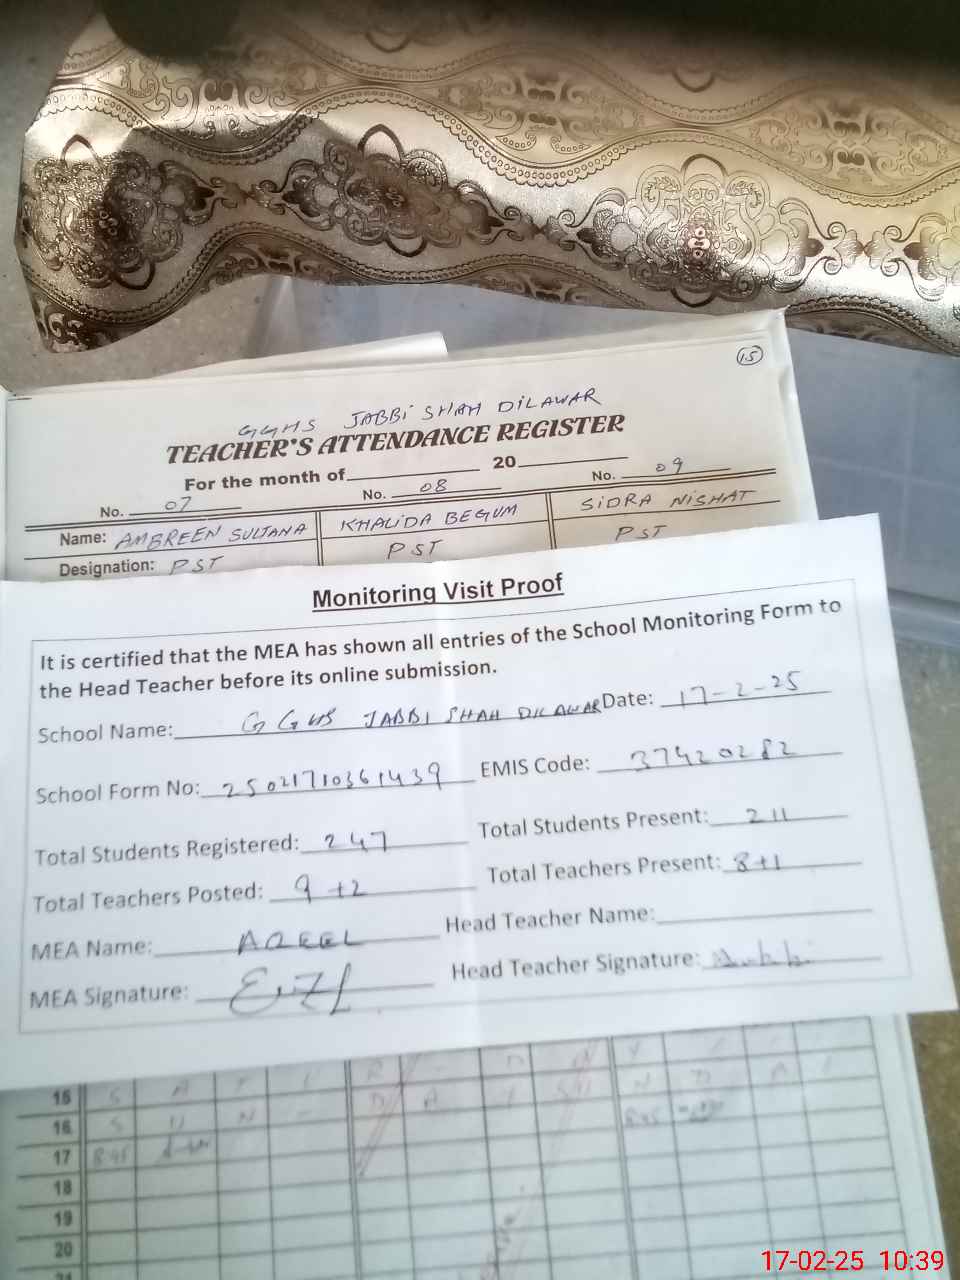 15
GGHS JABBI SHAH DILAWAR
TEACHER'S ATTENDANCE REGISTER
For the month of 20
No. 07 No. 08 No. 09
Name: AMBREEN SULTANA KHALIDA BEGUM SIDRA NISHAT
Designation: PST PST PST
Monitoring Visit Proof
It is certified that the MEA has shown all entries of the School Monitoring Form to
the Head Teacher before its online submission.
School Name: GGHS JABBI SHAH DILAWAR Date: 17-2-25
School Form No: 25021710361439 EMIS Code: 37420282
Total Students Registered: 247 Total Students Present: 211
Total Teachers Posted: 9+2 Total Teachers Present: 8+1
MEA Name: AQEEL Head Teacher Name:
MEA Signature: Head Teacher Signature:
15 S A T
16 S U N
17 8:45
18
19
20
17-02-25 10:39